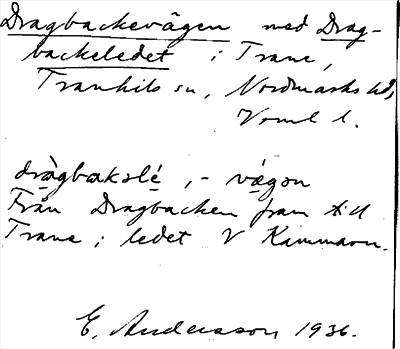 Dragbackevägen med Drag-
backeledet i Trane,
Trankils sn, Nordmarks hd,
Vrml l.
dràgbakslé, - vægən
Från Dragbacken fram till
Trane i ledet V Kammarn.
E. Andersson 1936.